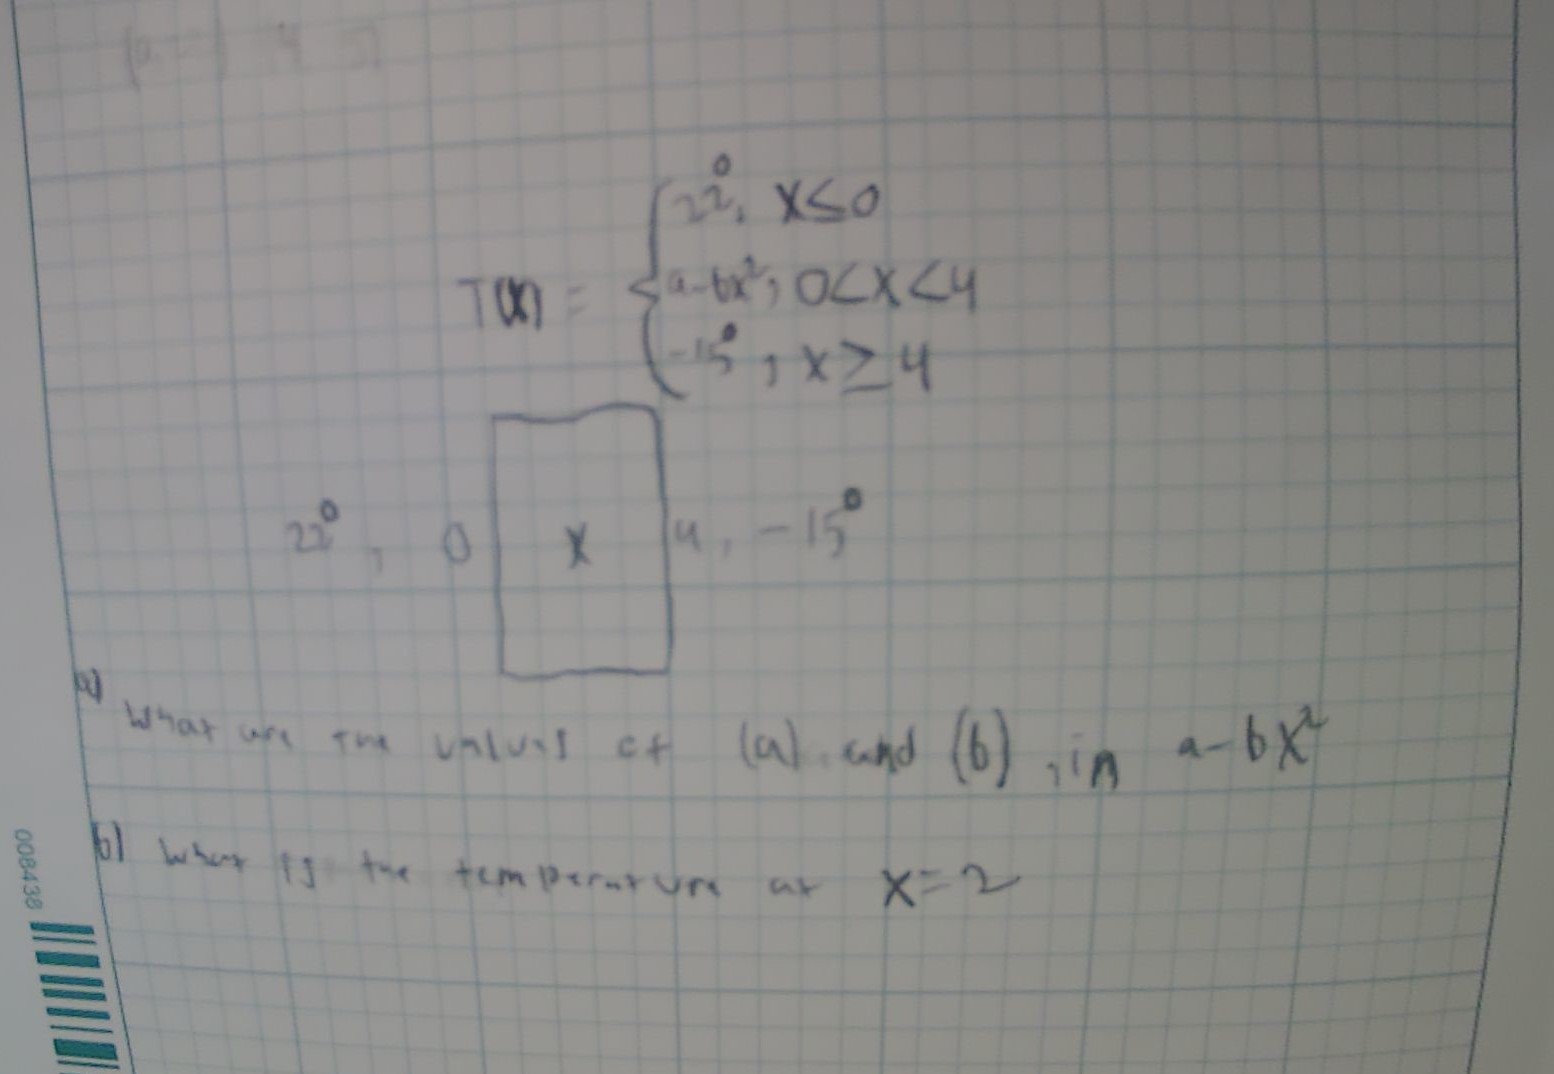 T(x) = { 22°, x ≤ 0
a-bx², 0<x<4
-15°, x ≥ 4
22°, 0 x 4, -15°
a) What are the values of (a) and (b), in a-bx²
b) What is the temperature at x=2
008438